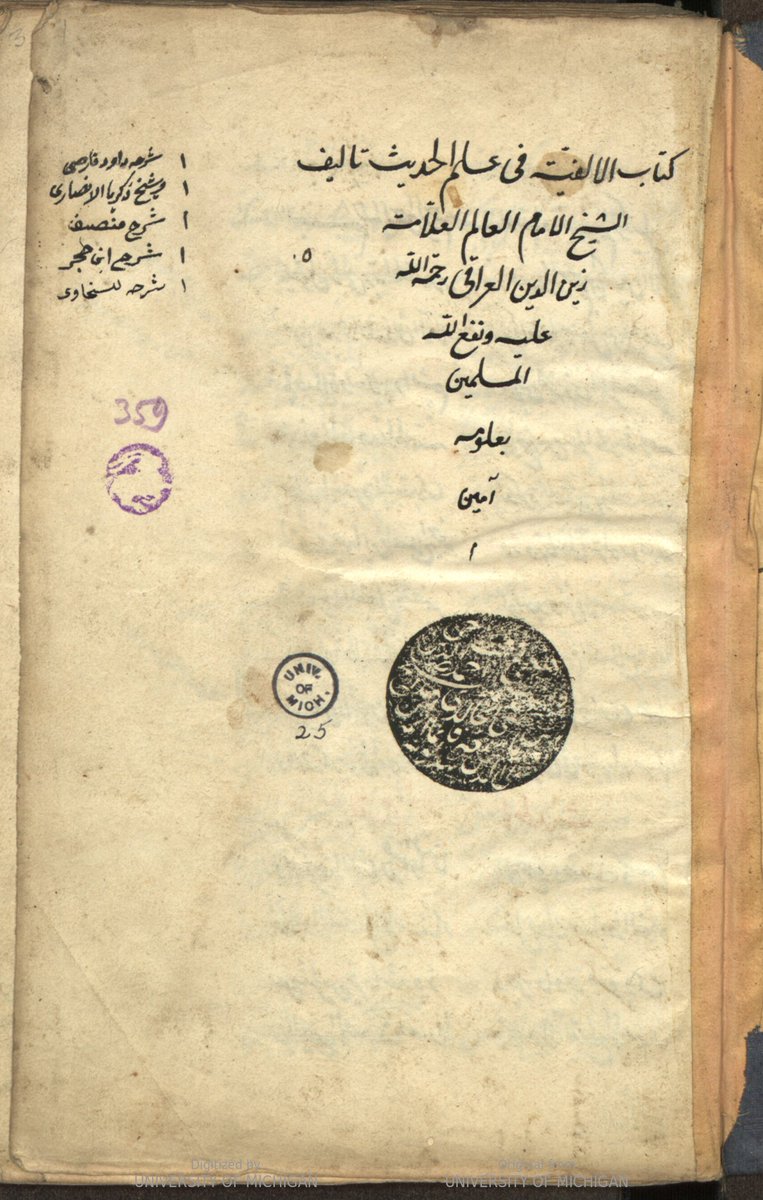 كتاب الالفية فى علم الحديث تاليف
الشيخ الامام العالم العلامة
زين الدين العراقى رحمة الله
عليه ونفع الله
المسلمين
بعلومه
آمين
١ شرحه داود قارصى
١ وشيخ زكريا الانصارى
١ شرح مصنف
١ شرح ابن حجر
١ شرحه للسخاوى
359
UNIV.
OF
MICH.
25
Digitized by
UNIVERSITY OF MICHIGAN
Original from
UNIVERSITY OF MICHIGAN